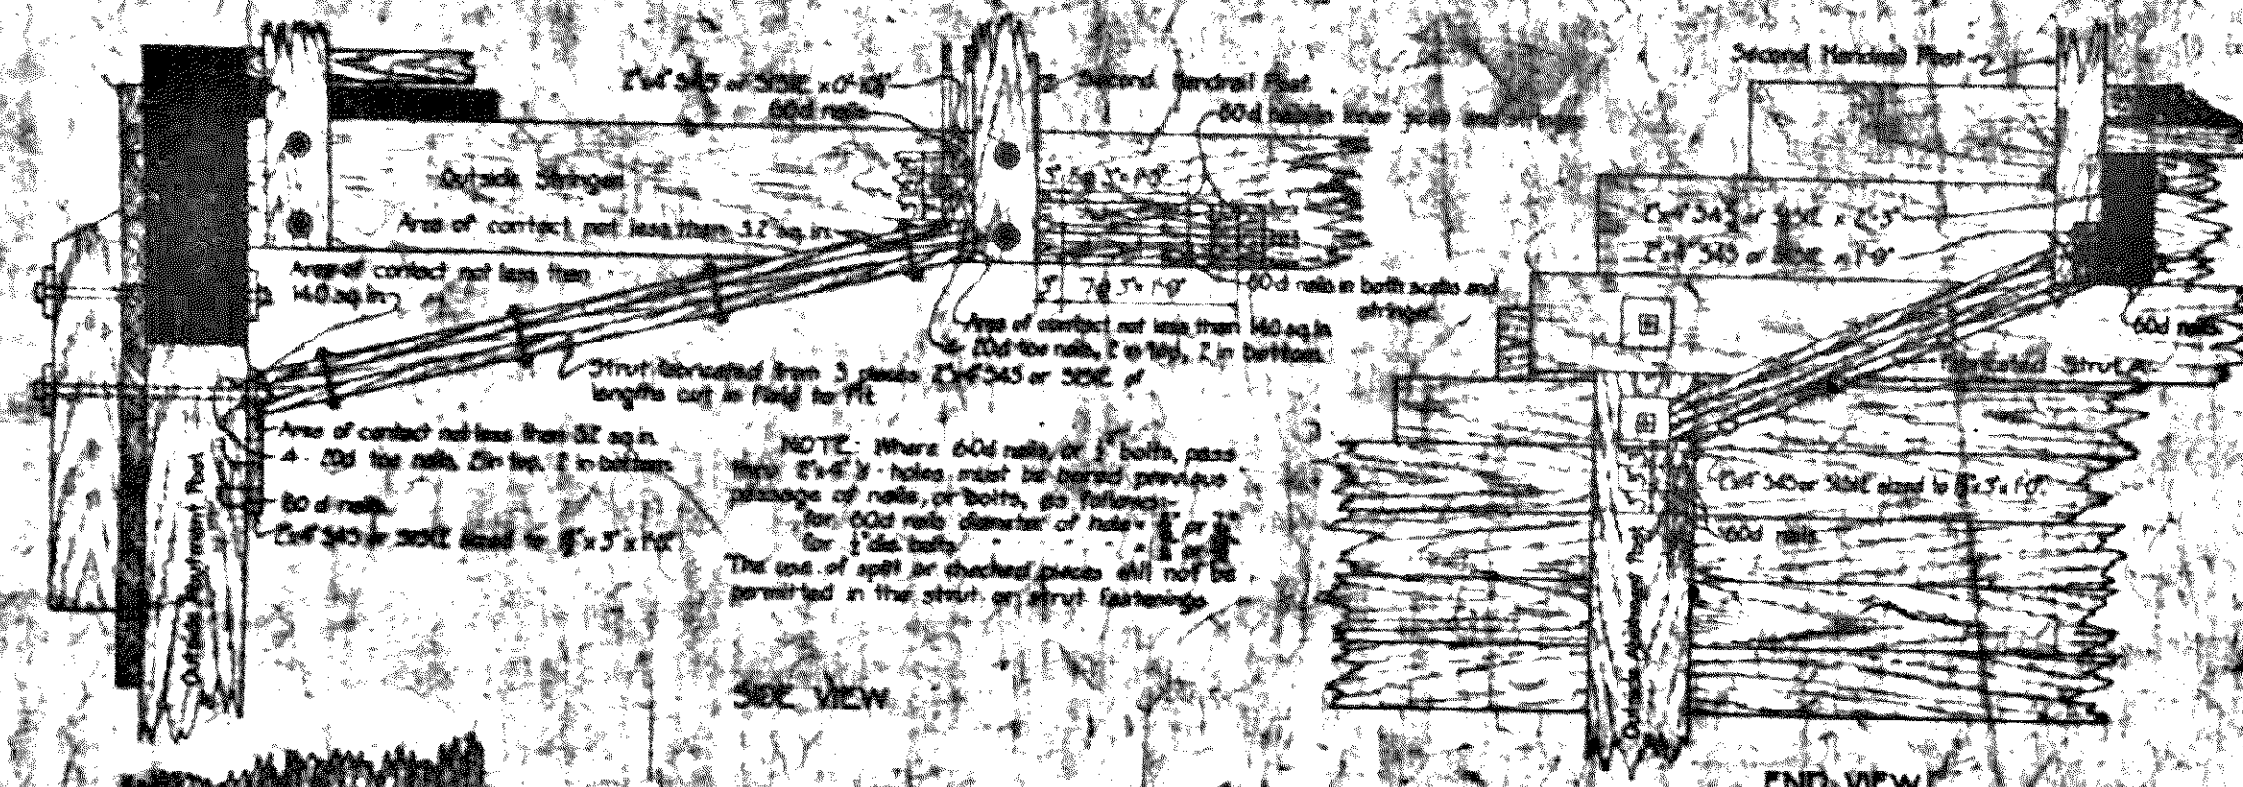 Second Handrail Post
2"x4" S4S or S1S1E x 0'-10½"
60d nails
Second Handrail Post
60d nails in inner scab and stringer
Outside Stringer
Area of contact not less than 32 sq. in.
Area of contact not less than
140 sq. in.
3" 5@3"=1'-3"
3" 7@3"=1'-9"
60d nails in both scabs and
stringer
Area of contact not less than 140 sq. in.
4- 20d toe nails, 2 in top, 2 in bottom.
Strut fabricated from 3 pieces 2"x4" S4S or S1S1E of
lengths cut in field to fit
Area of contact not less than 32 sq. in.
4- 20d toe nails, 2 in top, 2 in bottom
60 d nails
2"x4" S4S or S1S1E sized to x 3" x 1'-0"
Outside Abutment Post
NOTE: Where 60d nails, or bolts, pass
thru 2"x4"s holes must be bored previous
passage of nails, or bolts, as follows:-
for 60d nails diameter of hole= or
for ½" dia. bolts " " " = or
The use of split or checked pieces will not be
permitted in the strut or strut fastenings
SIDE VIEW
2"x4" S4S or S1S1E x 2'-3"
2"x4" S4S or S1S1E x 1'-9"
60d nails
Fabricated Strut
2"x4" S4S or S1S1E sized to x 3" x 1'-0"
60d nails
Outside Abutment Post
END VIEW